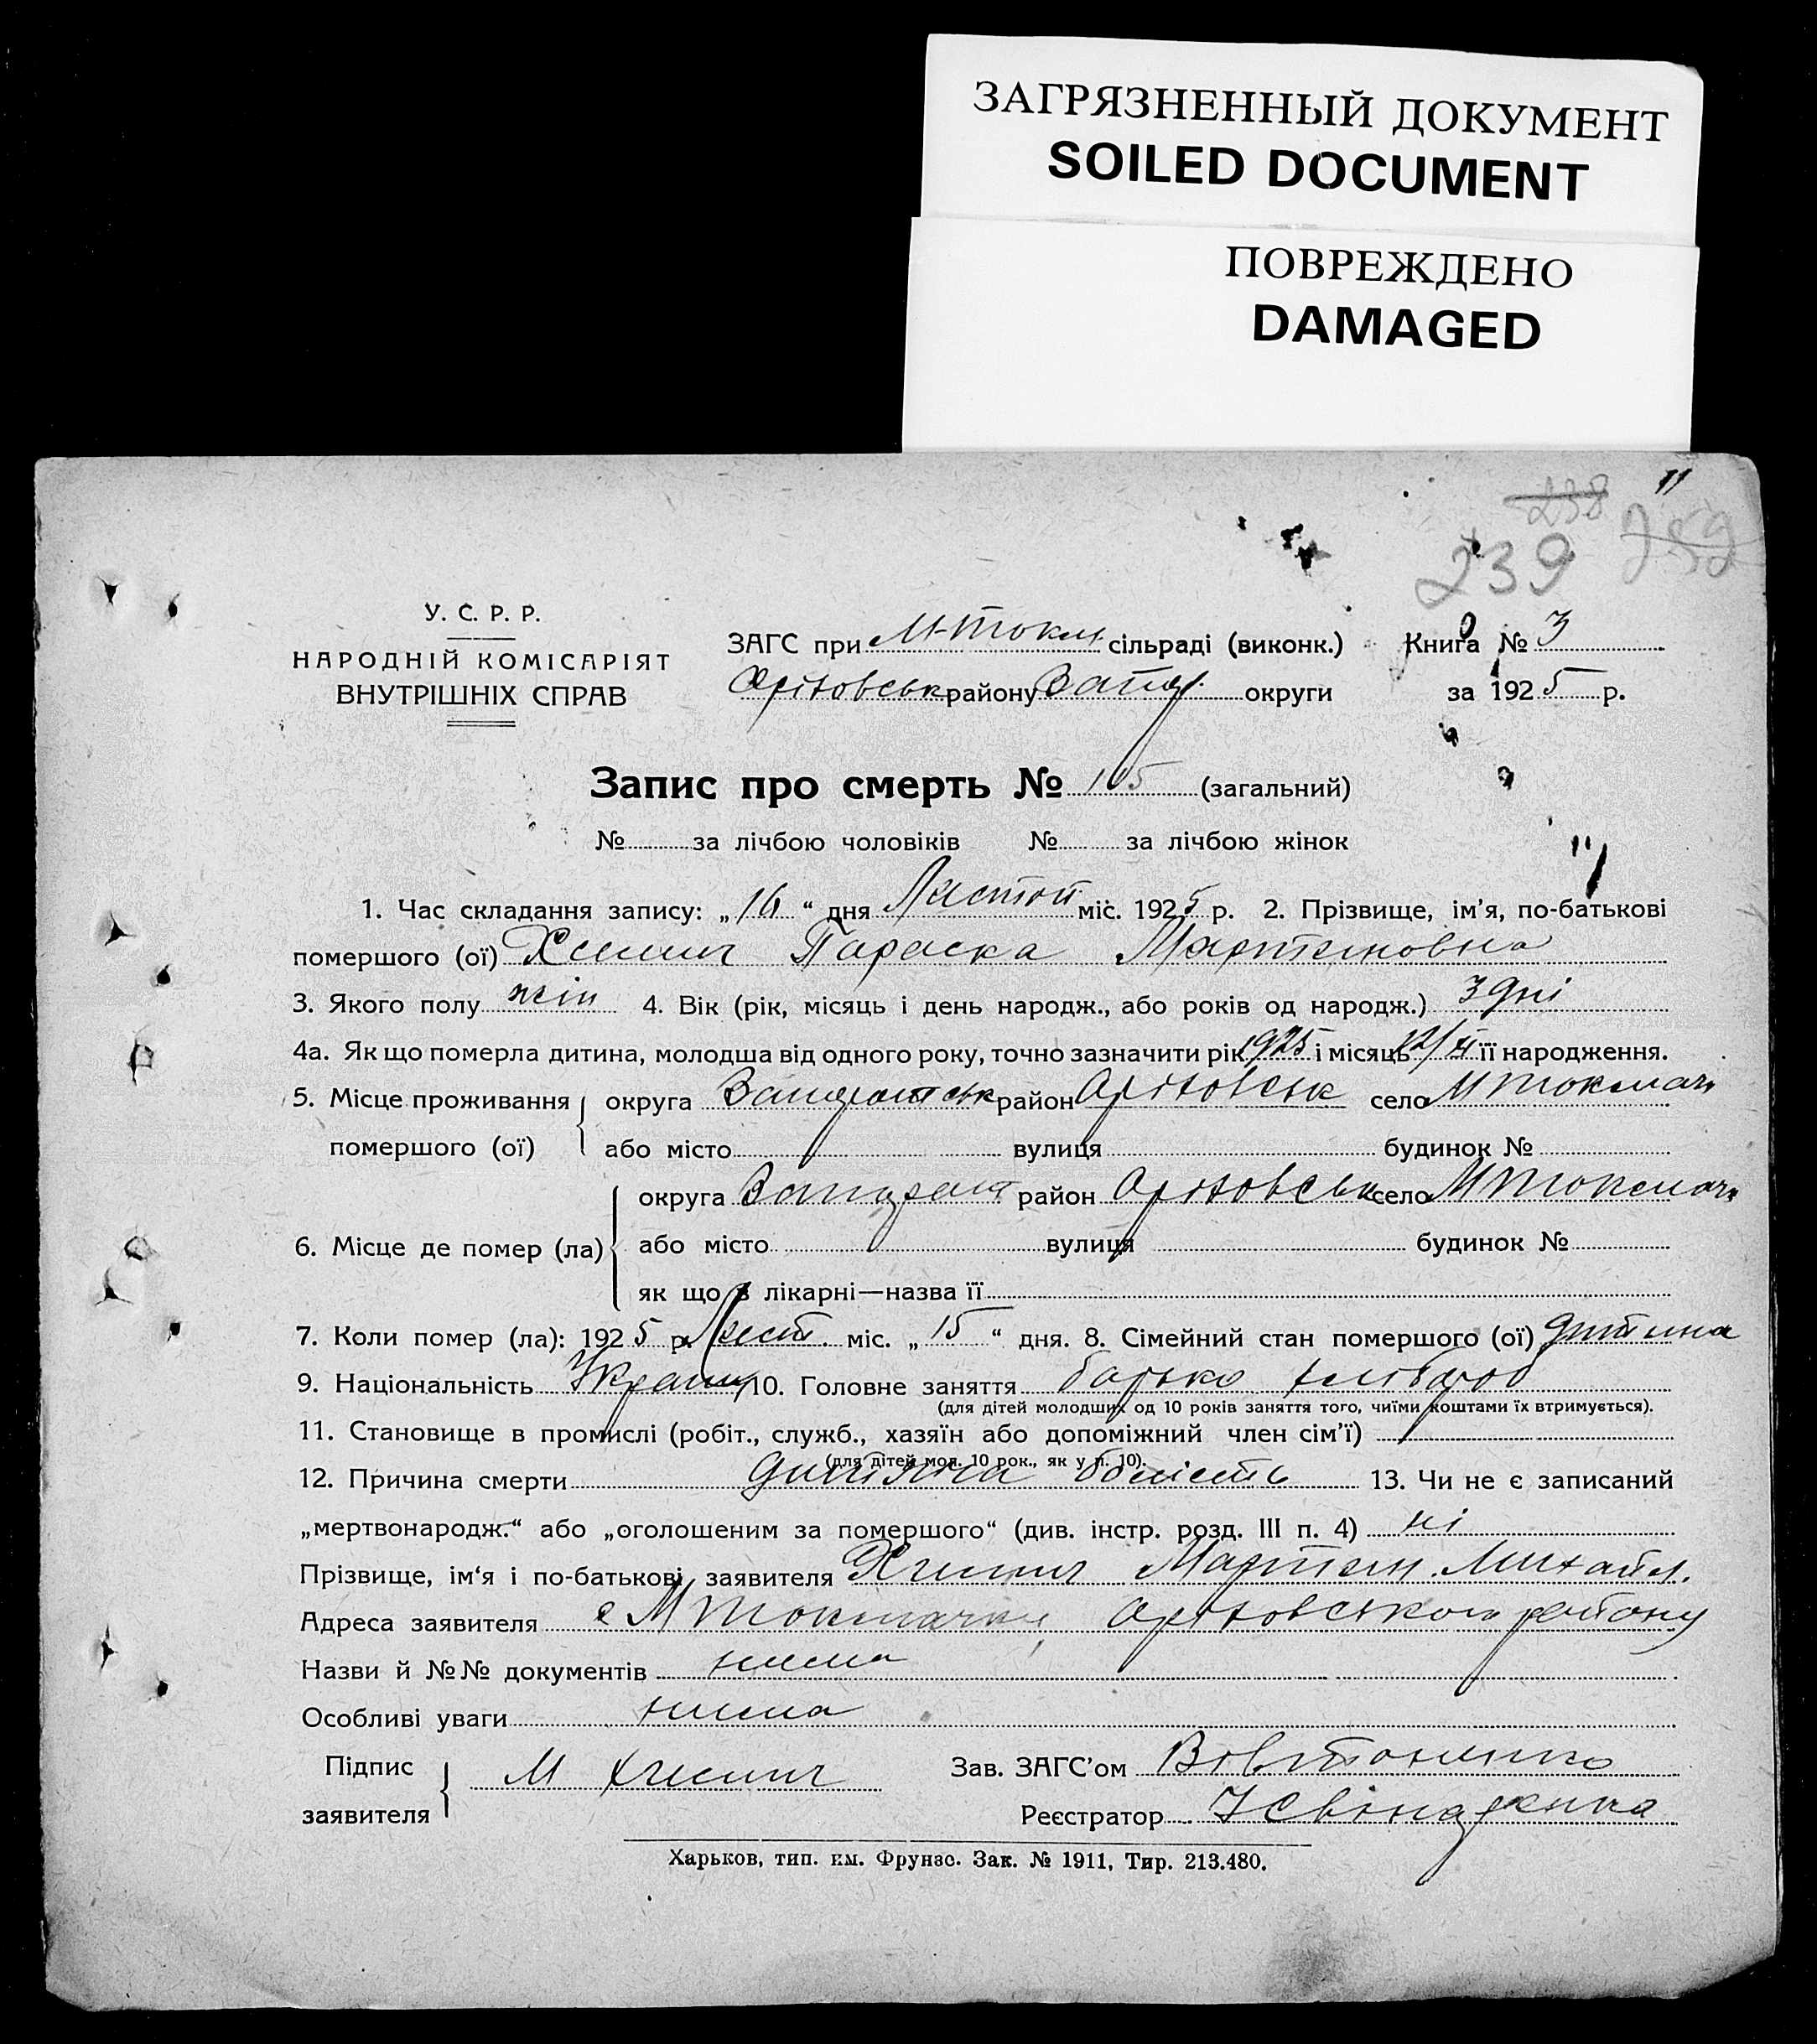 ЗАГРЯЗНЕННЫЙ ДОКУМЕНТ
SOILED DOCUMENT
ПОВРЕЖДЕНО
DAMAGED
11
238
239
У. С. Р. Р.
НАРОДНІЙ КОМІСАРІЯТ
ВНУТРІШНІХ СПРАВ
ЗАГС при М-Токм. сільраді (виконк.) Книга № 3
Оріховськ району Запор. округи за 1925 р.
Запис про смерть № 105 (загальний)
№ за лічбою чоловіків № за лічбою жінок
1. Час складання запису: „16“ дня Листоп міс. 1925 р. 2. Прізвище, ім'я, по-батькові
помершого (ої) Параска Мартиновна
3. Якого полу жін 4. Вік (рік, місяць і день народж., або років од народж.) 3 дні
4а. Як що померла дитина, молодша від одного року, точно зазначити рік 1925 і місяць 12/XI її народження.
5. Місце проживання округа район Оріховськ село М Токмач
помершого (ої) або місто вулиця будинок №
6. Місце де помер (ла) округа район Оріховськ село М Токмач
або місто вулиця будинок №
як що в лікарні—назва її
7. Коли помер (ла): 1925 р. Лист. міс. „15“ дня. 8. Сімейний стан помершого (ої) дитина
9. Національність 10. Головне заняття батько хлібороб
(для дітей молодших од 10 років заняття того, чиїми коштами їх втримується).
11. Становище в промислі (робіт., служб., хазяїн або допоміжний член сім'ї)
(для дітей мол. 10 рок., як у п. 10).
12. Причина смерти дитяча болість 13. Чи не є записаний
„мертвонародж.“ або „оголошеним за помершого“ (див. інстр. розд. III п. 4) ні
Прізвище, ім'я і по-батькові заявителя Мартин Михайл.
Адреса заявителя с М Токмачка Оріховського району
Назви й №№ документів нима
Особливі уваги нима
Підпис
заявителя М
Зав. ЗАГС'ом
Реєстратор
Харьков, тип. им. Фрунзе. Зак. № 1911, Тир. 213.480.